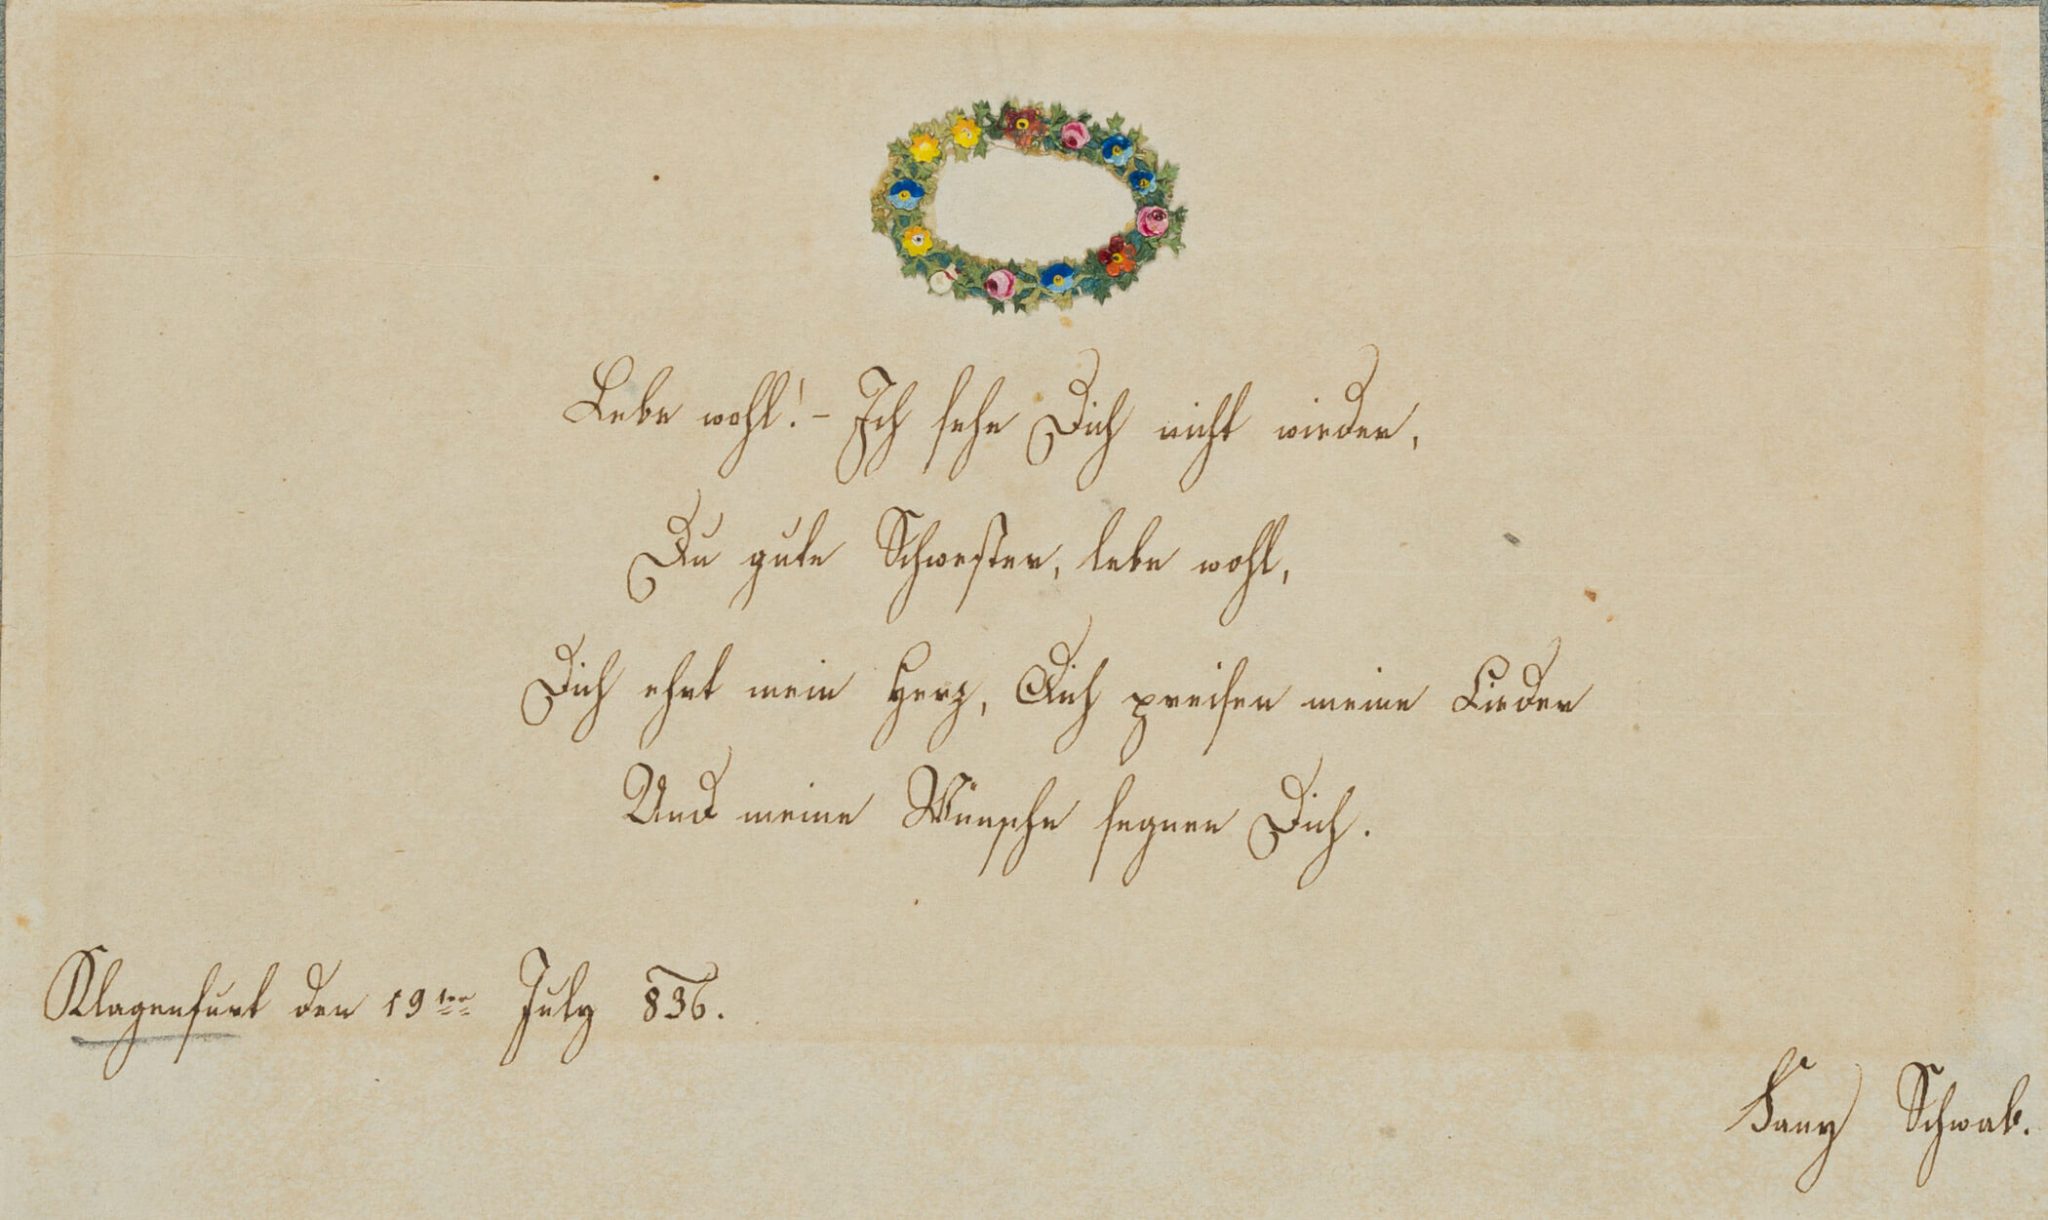 Lebe wohl! – Ich sehe Dich nicht wieder,
Du gute Schwester, lebe wohl,
Dich ehrt mein Herz, Dich preisen meine Lieder
Und meine Wünsche segnen Dich.
Klagenfurt den 19ten July 836.
Fany Schwab.